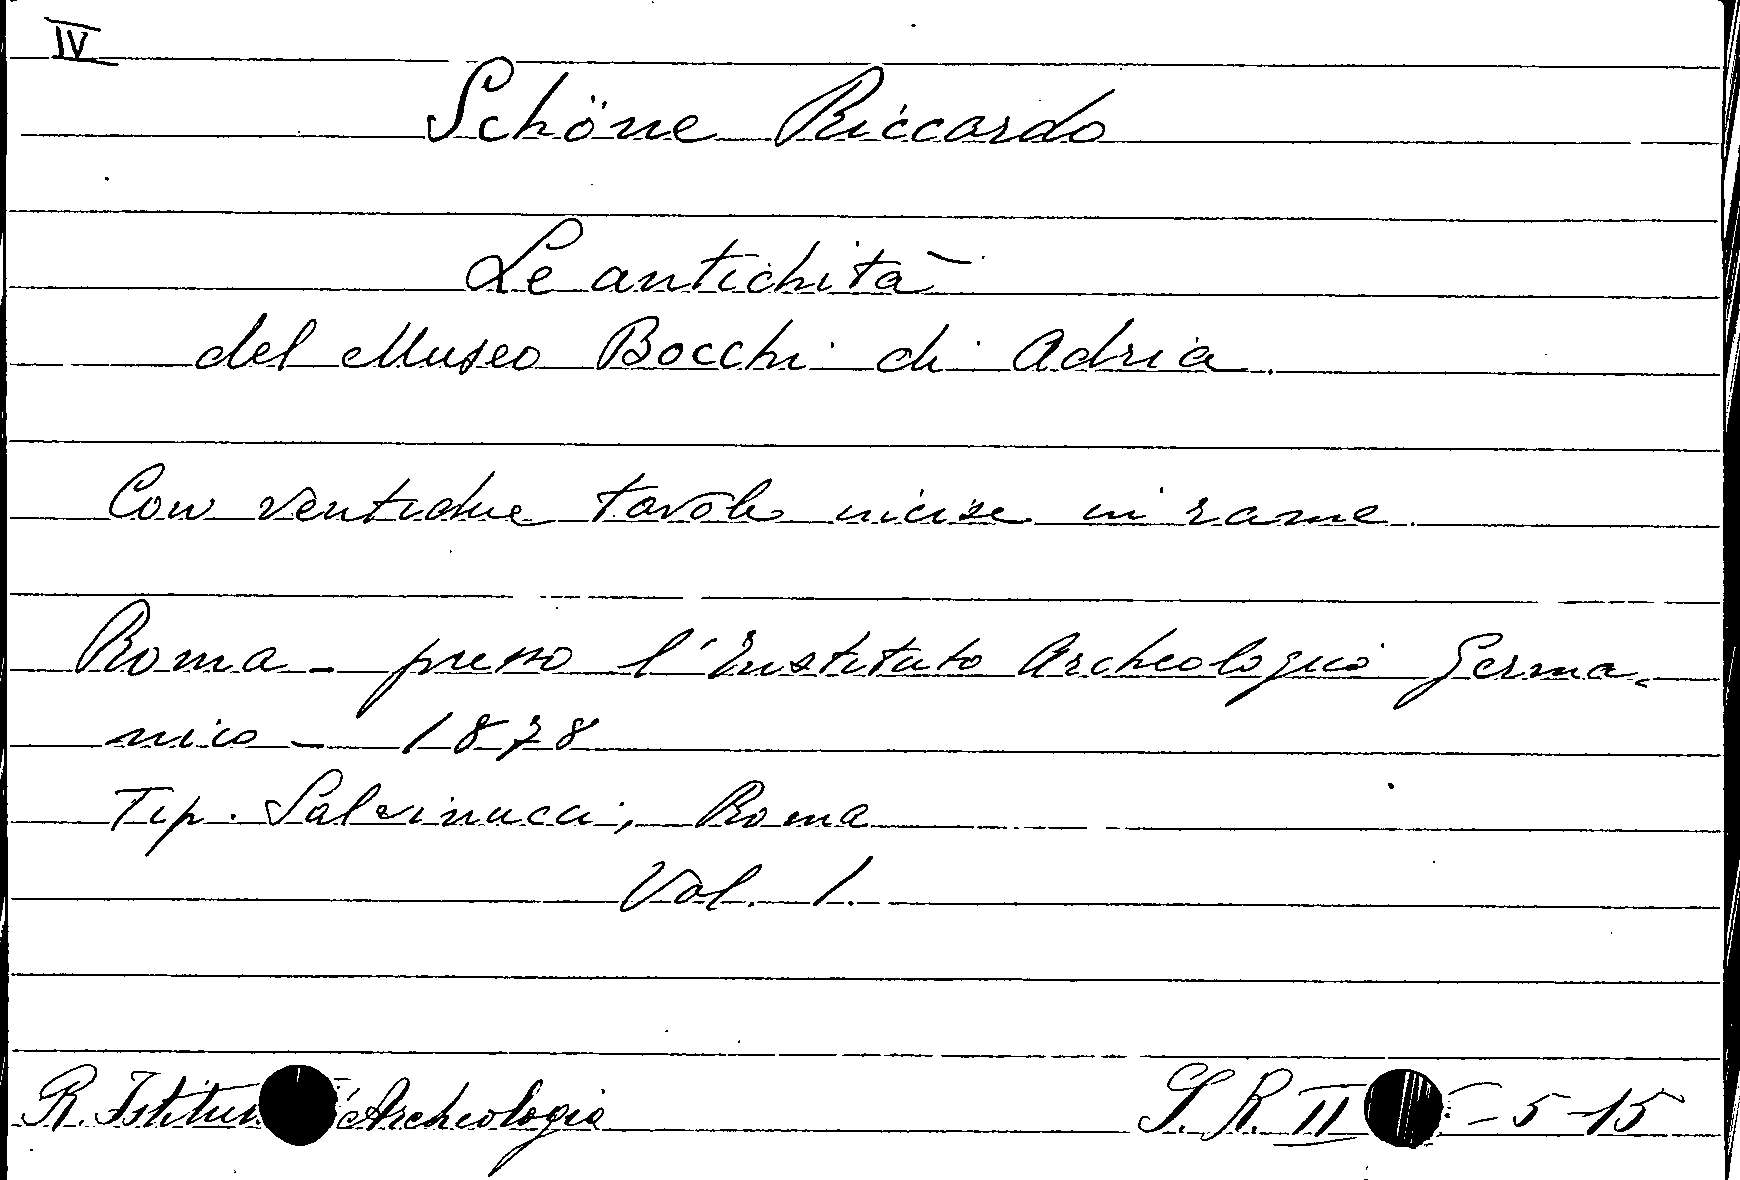 IV
Schöne Riccardo
Le antichità
del Museo Bocchi di Adria.
Con ventidue tavole incise in rame.
Roma - presso l'Instituto Archeologico Germa-
nico - 1878
Tip. Salvinucci, Roma
Vol. 1.
R. Archeologia
S. R. II - 5 - 15